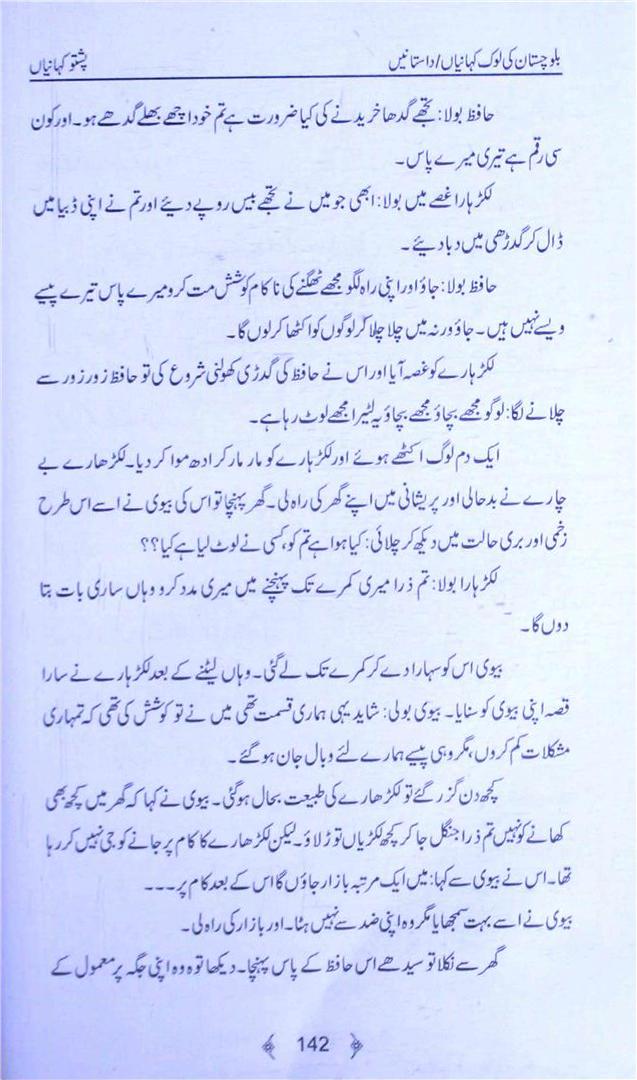 بلوچستان کی لوک کہانیاں/داستانیں
پشتو کہانیاں
حافظ بولا: تجھے گدھا خریدنے کی کیا ضرورت ہے تم خود اچھے بھلے گدھے ہو۔ اور کون
سی رقم ہے تیری میرے پاس۔
لکڑہارا غصے میں بولا: ابھی جو میں نے تجھے بیس روپے دیئے اور تم نے اپنی ڈبیا میں
ڈال کر گدڑھی میں دبا دیئے۔
حافظ بولا: جاؤ اور اپنی راہ لگو مجھے ٹھگنے کی ناکام کوشش مت کرو میرے پاس تیرے پیسے
ویسے نہیں ہیں۔ جاؤ ورنہ میں چلا چلا کر لوگوں کو اکٹھا کرلوں گا۔
لکڑہارے کو غصہ آیا اور اس نے حافظ کی گدڑی کھولنی شروع کی تو حافظ زور زور سے
چلانے لگا: لوگو مجھے بچاؤ مجھے بچاؤ یہ لٹیرا مجھے لوٹ رہا ہے۔
ایک دم لوگ اکٹھے ہوئے اور لکڑہارے کو مار مار کر ادھ موا کر دیا۔ لکڑھارے بے
چارے نے بدحالی اور پریشانی میں اپنے گھر کی راہ لی۔ گھر پہنچا تو اس کی بیوی نے اسے اس طرح
زخمی اور بری حالت میں دیکھ کر چلائی: کیا ہوا ہے تم کو، کسی نے لوٹ لیا ہے کیا؟؟
لکڑہارا بولا: تم ذرا میری کمرے تک پہنچنے میں میری مدد کرو وہاں ساری بات بتا
دوں گا۔
بیوی اس کو سہارا دے کر کمرے تک لے گئی۔ وہاں لیٹنے کے بعد لکڑہارے نے سارا
قصہ اپنی بیوی کو سنایا۔ بیوی بولی: شاید یہی ہماری قسمت تھی میں نے تو کوشش کی تھی کہ تمہاری
مشکلات کم کروں، مگر وہی پیسے ہمارے لئے وبال جان ہو گئے۔
کچھ دن گزر گئے تو لکڑھارے کی طبیعت بحال ہوگئی۔ بیوی نے کہا کہ گھر میں کچھ بھی
کھانے کو نہیں تم ذرا جنگل جا کر کچھ لکڑیاں توڑ لاؤ۔ لیکن لکڑھارے کا کام پر جانے کو جی نہیں کر رہا
تھا۔ اس نے بیوی سے کہا: میں ایک مرتبہ بازار جاؤں گا اس کے بعد کام پر۔۔۔
بیوی نے اسے بہت سمجھایا مگر وہ اپنی ضد سے نہیں ہٹا۔ اور بازار کی راہ لی۔
گھر سے نکلا تو سیدھے اس حافظ کے پاس پہنچا۔ دیکھا تو وہ اپنی جگہ پر معمول کے
142